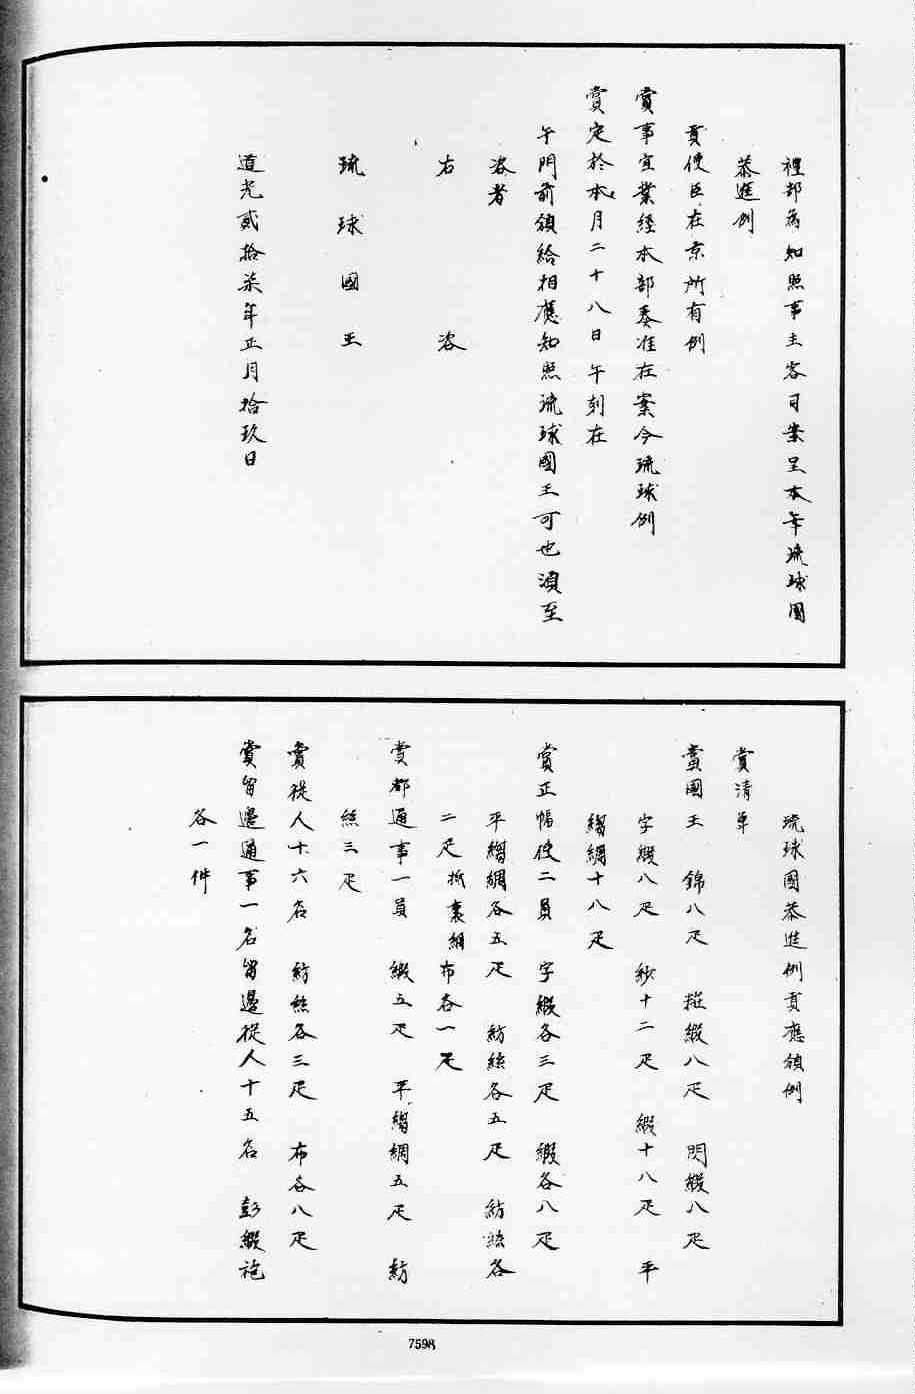 禮部為知照事主客司案呈本年琉球國
恭進例
貢使臣在京所有例
賞事宜業經本部奏准在案今琉球例
賞定於本月二十八日午刻在
午門前頒給相應知照琉球國王可也須至
咨者
右咨
琉球國王
道光貳拾柒年正月拾玖日
琉球國恭進例貢應頒例
賞清單
賞國王 錦八疋 粧緞八疋 閃緞八疋
字緞八疋 紗十二疋 緞十八疋 平
縐綢十八疋
賞正幅使二員 字緞各三疋 緞各八疋
平縐綢各五疋 紡絲各五疋 紡絲各
二疋 抵裏綢 布各一疋
賞都通事一員 緞五疋 平縐綢五疋 紡
絲三疋
賞從人十六名 紡絲各三疋 布各八疋
賞留邊通事一名留邊從人十五名 彭緞袍
各一件
7598